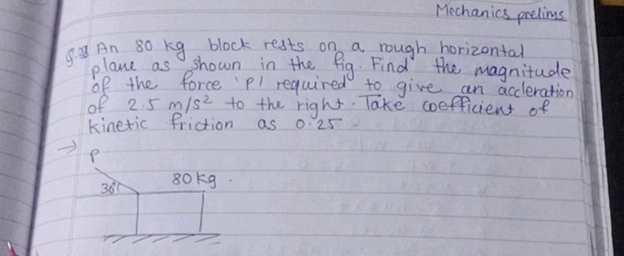 Mechanics prelims
An 80 kg block rests on a rough horizontal
plane as shown in the fig. Find the magnitude
of the force 'P' required to give an accleration
of 2.5 m/s² to the right. Take coefficient of
kinetic friction as 0.25
→
P
30° 80 kg.